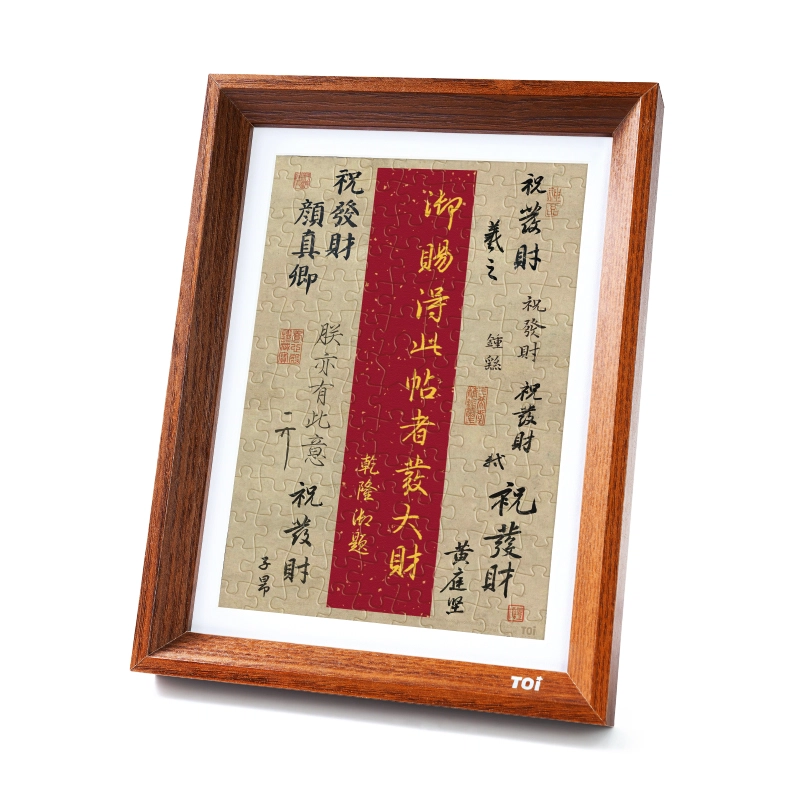 祝發財
羲之
祝發財
鍾繇
祝發財
軾
祝發財
黄庭坚
御賜得此帖者發大財
乾隆御題
祝發財
顏真卿
朕亦有此意
祝發財
子昂
TOi
TOi